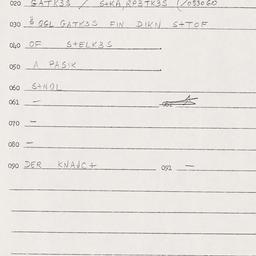 020 GATK3S / S+KA,RP3TK3S (/093060
030 & 2GL GATK3S FIN DIKN S+TOF
040 OF S+ELK3S
050 A PASIK
060 S+NOL
061 —
070 —
080 —
090 DER KNAUC+ 091 —